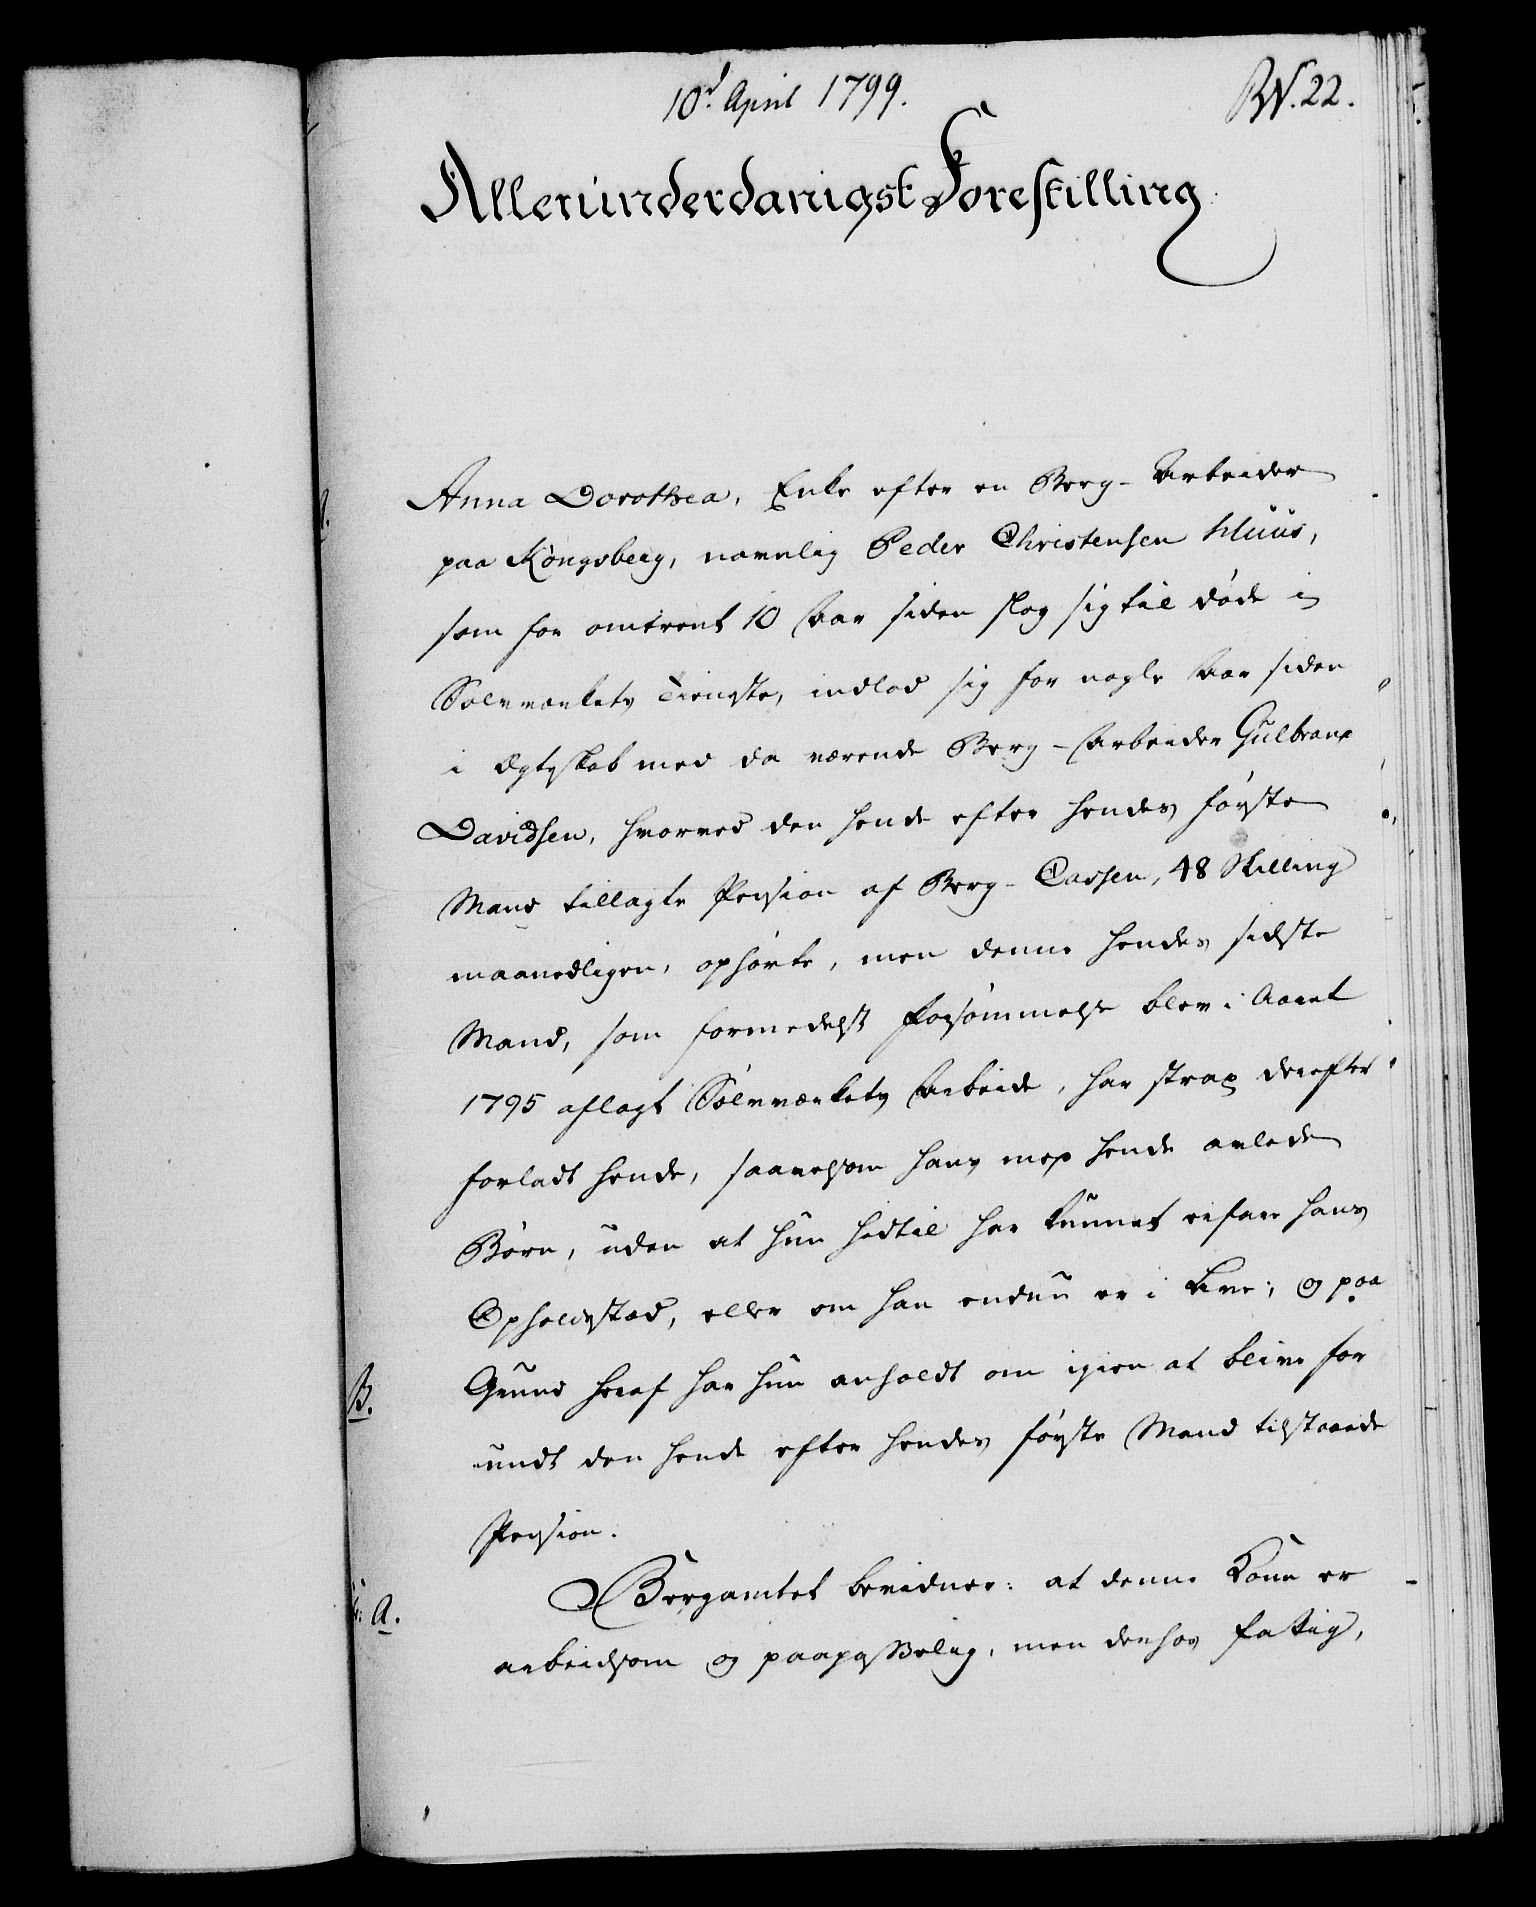 10d. April 1799.
RN. 22.
Allerunderdanigst Forestilling
Anna Dorothea, Enke efter en Berg-Arbeider
paa Kongsberg, navnlig Peder Christensen Muus,
som for omtrent 10 Aar siden slog sig til døde i
Sølvværkets Tieneste, indlod sig for nogle Aar siden
i Ægteskab med da værende Berg-Arbeider Gulbran
Davidsen, hvorved den hende efter hendes første
Mand tillagte Pension af Berg-Cassen, 48 Skilling
maanedligen, ophørte, men denne hendes sidste
Mand, som formedelst Forsømmelse blev i Aaret
1795 aflagt Sølvværkets Arbeide, har strax derefter
forladt hende, saavelsom hans med hende avlede
Børn, uden at hun hidtil har kunnet erfare hans
Opholdsted, eller om han endnu er i Live; og paa
B.
Grund heraf har hun anholdt om igien at blive for
undt den hende efter hendes første Mand tilstaaede
Pension.
A.
Bergamtet bevidner: at denne Kone er
arbeidsom og paapasselig, men derhos fattig,